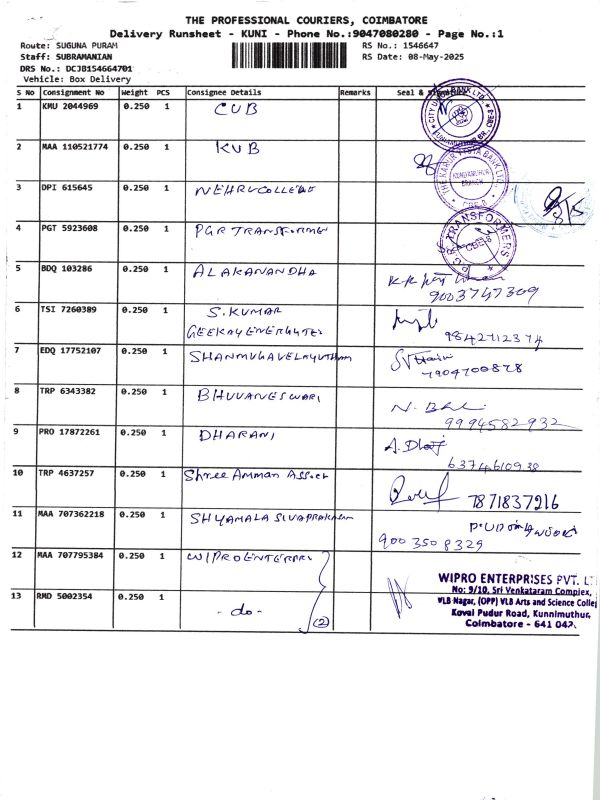 THE PROFESSIONAL COURIERS, COIMBATORE
Delivery Runsheet - KUNI - Phone No.:9047080280 - Page No.:1
Route: SUGUNA PURAM RS No.: 1546647
Staff: SUBRAMANIAN RS Date: 08-May-2025
DRS No.: DCJB154664701
Vehicle: Box Delivery
S No Consignment No Weight PCS Consignee Details Remarks Seal &
1 KMU 2044969 0.250 1 CUB
2 MAA 110521774 0.250 1 KVB
3 DPI 615645 0.250 1 NEHRU COLLEGE
4 PGT 5923608 0.250 1 PGR TRANSFORMER
5 BDQ 103286 0.250 1 ALAKANANDHA
9003747309
6 TSI 7260389 0.250 1 S.KUMAR
GEEKAY ENERGYTEC 9842712374
7 EDQ 17752107 0.250 1 SHANMUGAVELAYUTHAM
7904700878
8 TRP 6343382 0.250 1 BHUVANESWARI
9994582932
9 PRO 17872261 0.250 1 DHARANI
6374610938
10 TRP 4637257 0.250 1 Shree Amman Assoct
7871837216
11 MAA 707362218 0.250 1 SHYAMALA SIVAPRAKASAM
9003508329
12 MAA 707795384 0.250 1 WIPRO ENTERPRI
13 RMD 5002354 0.250 1 - do -
(2)
WIPRO ENTERPRISES PVT. LT
No: 9/10, Sri Venkataram Complex,
VLB Nagar, (OPP) VLB Arts and Science Colleg
Kovai Pudur Road, Kunnimuthur,
Coimbatore - 641 042.